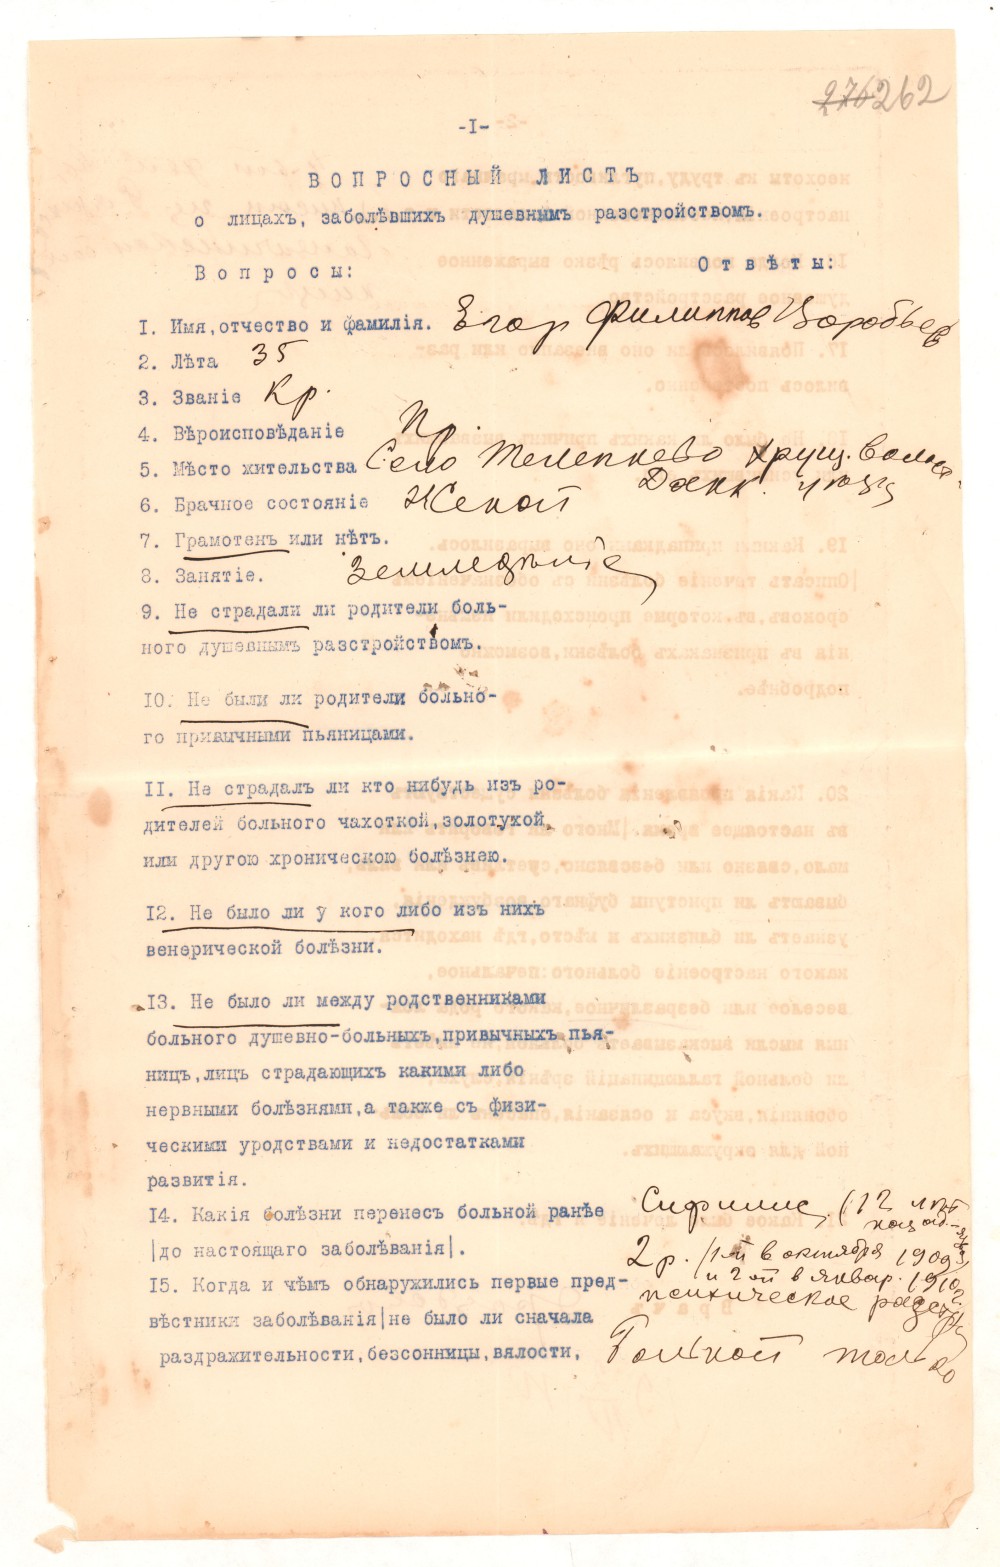 276 262
-I-
ВОПРОСНЫЙ ЛИСТЪ
о лицахъ, заболѣвшихъ душевнымъ разстройствомъ.
Вопросы: Отвѣты:
I. Имя,отчество и фамилія. Егор Филиппов Воробьев
2. Лѣта 35
3. Званіе Кр.
4. Вѣроисповѣданіе Пр.
5. Мѣсто жительства Село Телепнево Хрущ. волос.
Данк. уезд
6. Брачное состояніе Женат
7. Грамотенъ или нѣтъ.
8. Занятіе. Земледѣліе
9. Не страдали ли родители боль-
ного душевнымъ разстройствомъ.
10. Не были ли родители больно-
го привычными пьяницами.
II. Не страдалъ ли кто нибудь изъ ро-
дителей больного чахоткой,золотухой
или другою хроническою болѣзнею.
I2. Не было ли у кого либо изъ нихъ
венерической болѣзни.
I3. Не было ли между родственниками
больного душевно-больныхъ,привычныхъ пья-
ницъ,лицъ страдающихъ какими либо
нервными болѣзнями,а также съ физи-
ческими уродствами и недостатками
развитія.
I4. Какія болѣзни перенесъ больной ранѣе Сифилис (12 лѣт
назад
|до настоящаго заболѣванія|. 2 р. /1-й в октября 1909
и 2-ой в январ. 1910 г.
I5. Когда и чѣмъ обнаружились первые пред- психическое
вѣстники заболѣванія|не было ли сначала
раздражительности,безсонницы,вялости, Больной только